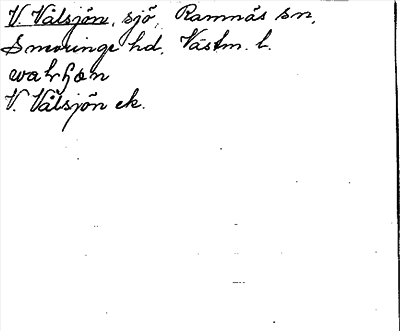 V. Valsjön, sjö, Ramnäs sn,
Snevringe hd, Västm. l.
V. Valsjön ek.